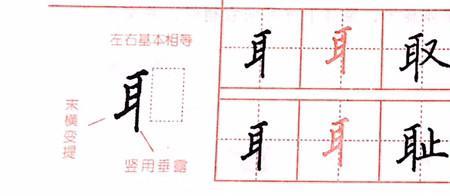 左右基本相等
耳
末横变提
竖用垂露
耳 耳 取
耳 耳 耻